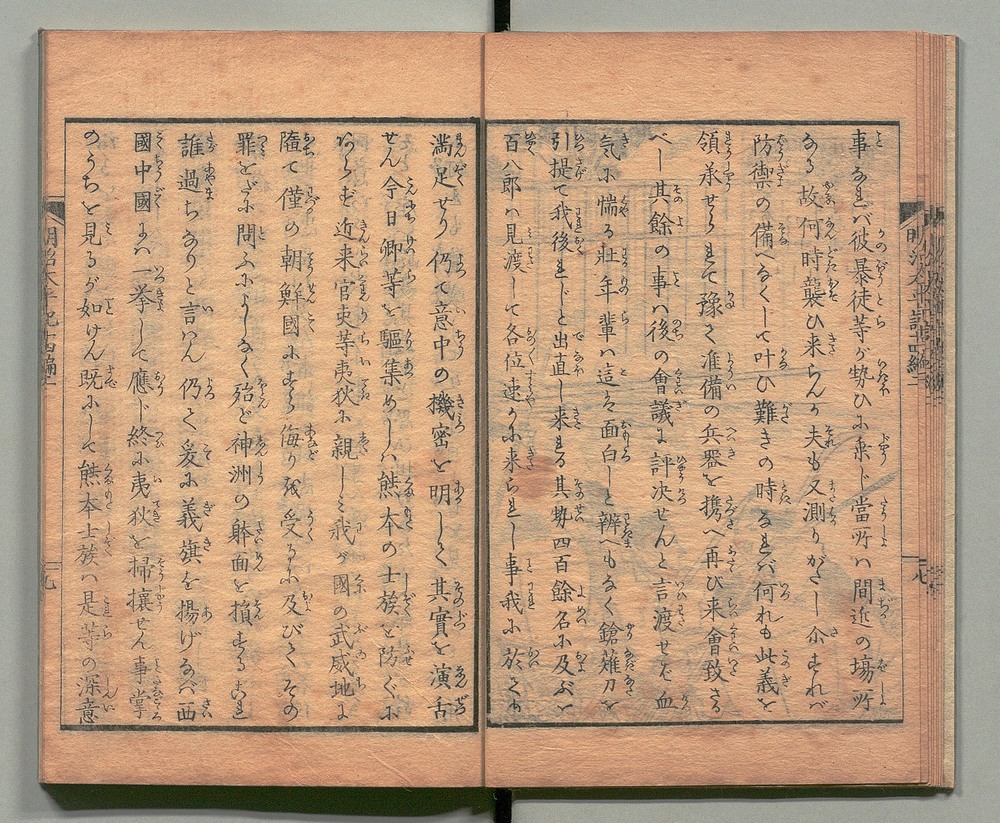 事なれバ彼暴徒等が勢ひに乘じ當所ハ間近の場所
なる故何時襲ひ来らんか夫も又測りがたし尓すれバ
防禦の備へなくして叶ひ難きの時なれバ何れも此義を
領承せられて豫て准備の兵器を携へ再び来會致さる
べし其餘の事ハ後の會議に評决せんと言渡せバ血
気に惴る壯年輩ハ這ハ面白しと辨へもなく鎗薙刀を
引提て我後れじと出直し来れる其勢四百餘名に及ぶを
百八郎ハ見渡して各位速かに来られし事我に於てハ
満足せり仍て意中の機密を明して其實を演舌
せん今日卿等を驅集めしハ熊本の士族を防ぐに
あらず近来官吏等夷狄に親しミ我が國の武威地に
墮て僅の朝鮮國にすら侮り残受るに及びてその
罪をだに問ふによしなく殆ど神洲の躰面を損するこれ
誰過ちなりと言はん仍て爰に義旗を揚げなバ西
國中國にハ一挙して應じ終に夷狄を掃攘せん事掌
のうちを見るが如けん既にして熊本士族ハ是等の深意
明治太平記十四編二
九